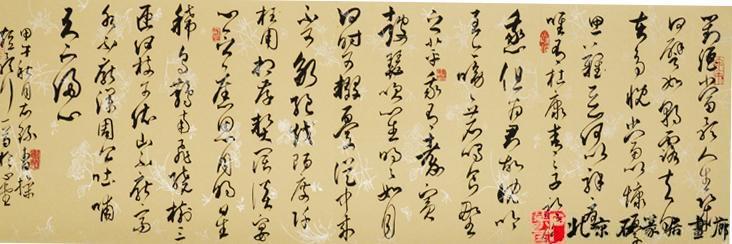 對酒當歌人生幾
何譬如朝露去日
苦多慨當以慷
思難忘何以解憂
唯有杜康青青子
但為君故沈吟
至今呦呦鹿鳴食野
之苹我有嘉賓
鼓瑟吹笙明明如月
何時可掇憂從中來
不可斷絕越陌度阡
枉用相存契闊談宴
心念舊恩月明星
稀烏鵲南飛繞樹三
匝何枝可依山不厭高
水不厭深周公吐哺
天下歸心
甲午秋月右錄曹操
短歌行一首於
北京 篆 画廊